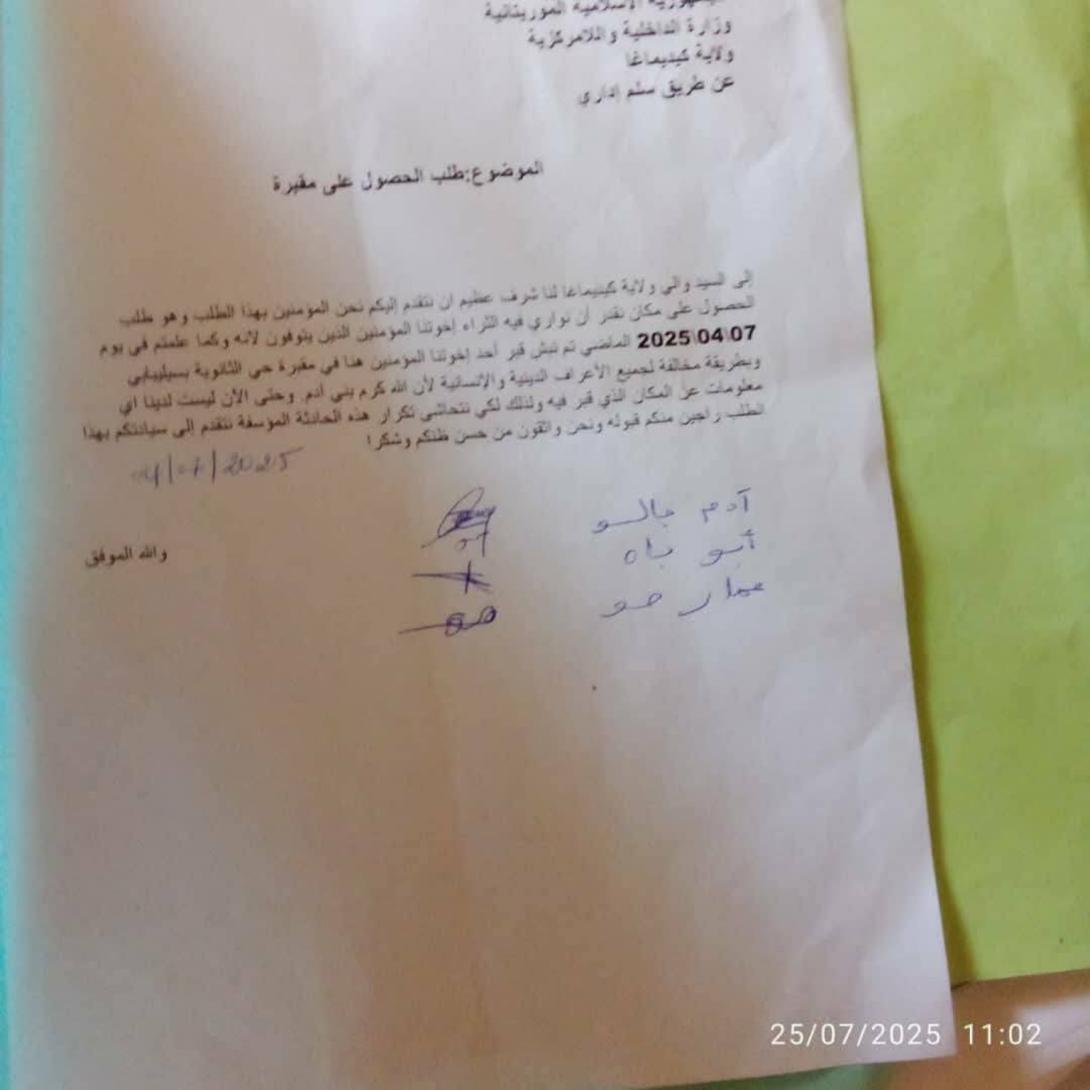 الإسلامية الموريتانية
وزارة الداخلية واللامركزية
ولاية كيديماغا
عن طريق سلم إداري
الموضوع:طلب الحصول على مقبرة
إلى السيد والي ولاية كيديماغا لنا شرف عظيم ان نتقدم إليكم نحن المؤمنين بهذا الطلب وهو طلب
الحصول على مكان نقدر أن نواري فيه الثراء إخوتنا المؤمنين الذين يتوفون لانه وكما علمتم في يوم
2025\04\07 الماضي تم نبش قبر أحد إخوتنا المؤمنين هنا في مقبرة حي الثانوية بسيليبابي
وبطريقة مخالفة لجميع الأعراف الدينية والإنسانية لأن الله كرم بني أدم. وحتى الأن ليست لدينا اي
معلومات عن المكان الذي قبر فيه ولذلك لكي نتحاشى تكرار هذه الحادثة المؤسفة نتقدم إلى سيادتكم بهذا
الطلب راجين منكم قبوله ونحن واثقون من حسن ظنكم وشكرا
/07/2025
آدم جالو
أبو باه
عمار صو
صو
والله الموفق
25/07/2025 11:02